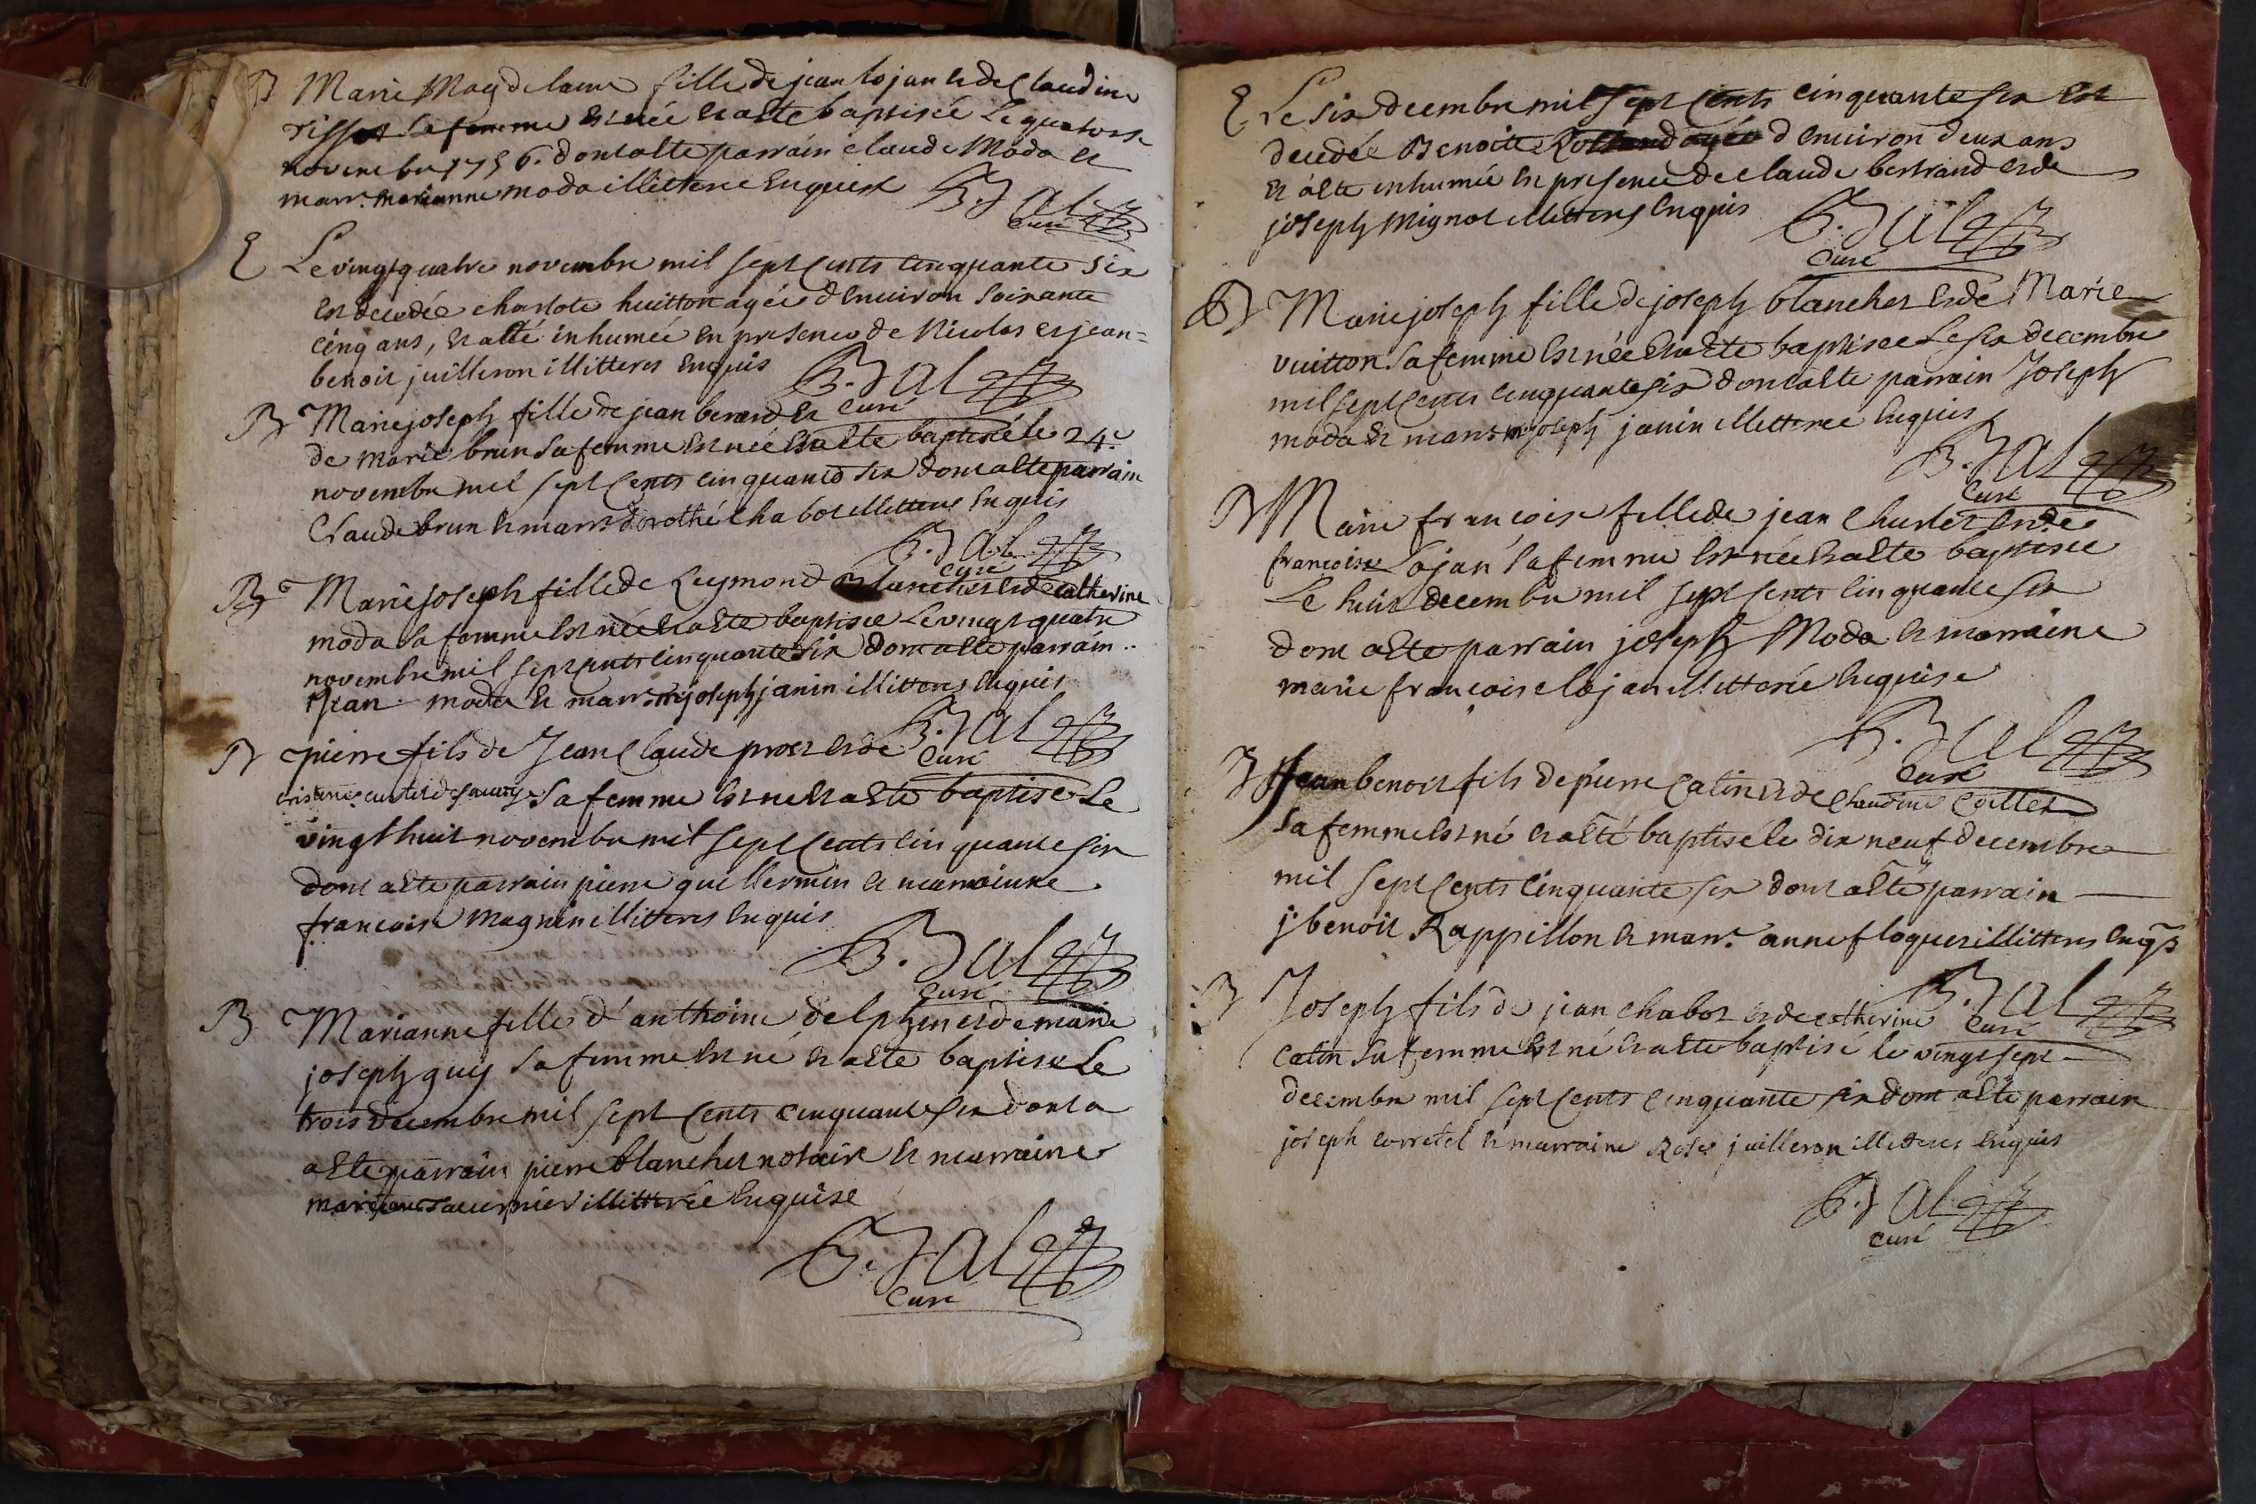 B Marie Magdelaine fille de jean lojan et de Claudine
rissot sa femme est née et a esté baptisée le quatorse
novembre 1756. dont a esté parrain claude Moda et
marr.e marianne moda illitteré enquis
B. Jal
curé
E Le vingt quatre novembre mil sept Cents Cinquante six
est decedée charlote huitton agée d'environ soixante
cinq ans, et a esté inhumée en presence de Nicolas et jean=
benoit juilleron illitteres enquis
B. Jal
curé
B Marie joseph fille de jean berard et
de marie brun sa femme est née et a esté baptisée le 24.e
novembre mil sept Cents cinquante six dont a esté parrain
Claude brun et marr.e dorothé chabot illitteres enquis
B. Jal
curé
B Marie joseph fille de Reymond blanchet et de catherine
moda sa femme est née et a esté baptisée le vingt quatre
novembre mil sept cents cinquante six dont a esté parrain
jean moda et marr.e m joseph janin illitteres enquis
B. Jal
curé
B pierre fils de Jean Claude prost et de
sa femme est né et a esté baptisé Le
vingt huit novembre mil sept Cents Cinquante six
dont a esté parrain pierre guillermin et marraine
francoise Magnin illitteres enquis
B. Jal
curé
B Marianne fille d'anthoine delphin et de marie
joseph guy sa femme est né et a esté baptisée Le
trois decembre mil sept Cents cinquante six dont a
esté parrain pierre blanchet notaire et marraine
saunier illitterée enquise
B. Jal
curé
E Le six decembre mil sept Cents cinquante six est
decedée Benoite Rolland agée d'environ deux ans
et a esté inhumée en presence de claude bertrand et de
joseph Mignot illitteres enquis
B. Jal
curé
B Marie joseph fille de joseph blanchet et de Marie
vuitton sa femme est née et a esté baptisée Le six decembre
mil sept Cents cinquante six dont a esté parrain Joseph
moda et marr.e m joseph janin illitterée enquis
B. Jal
curé
B Marie françoise fille de jean Chuslet et de
francoise Lojan sa femme est née et a esté baptisée
Le huit decembre mil sept Cents Cinquante six
dont a esté parrain joseph Moda et marraine
marie françoise lojan illitterée enquise
B. Jal
curé
B Jean benoit fils de pierre Catin et de Claudine Coillet
sa femme est né et a esté baptisé le dix neuf decembre
mil sept Cents Cinquante six dont a esté parrain
j. benoit Rappillon et marr.e anne floquet illitteres enq.s
B. Jal
curé
B Joseph fils de jean chabot et de catherine
catin sa femme est né et a esté baptisé le vingt sept
decembre mil sept Cents cinquante six dont a esté parrain
joseph corretel et marraine Rose juilleron illitteres enquis
B. Jal
curé